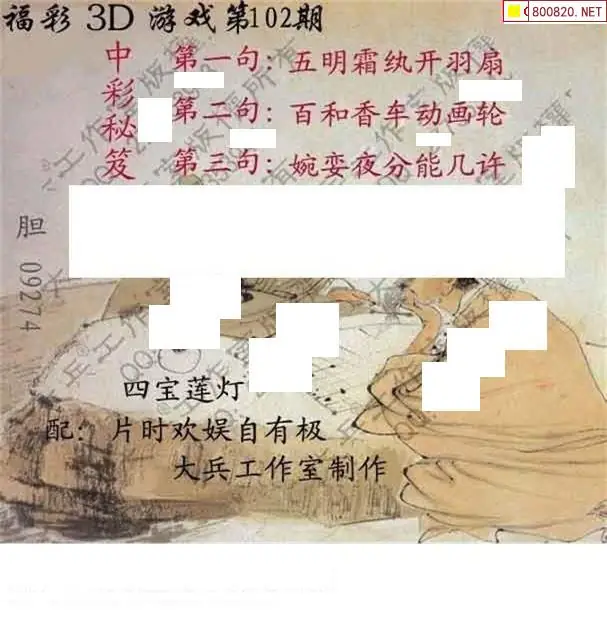 福彩 3D 游戏第102期
800820.NET
中彩秘笈
第一句：五明霜纨开羽扇
第二句：百和香车动画轮
第三句：婉娈夜分能几许
胆 09274
四宝莲灯
配：片时欢娱自有极
大兵工作室制作